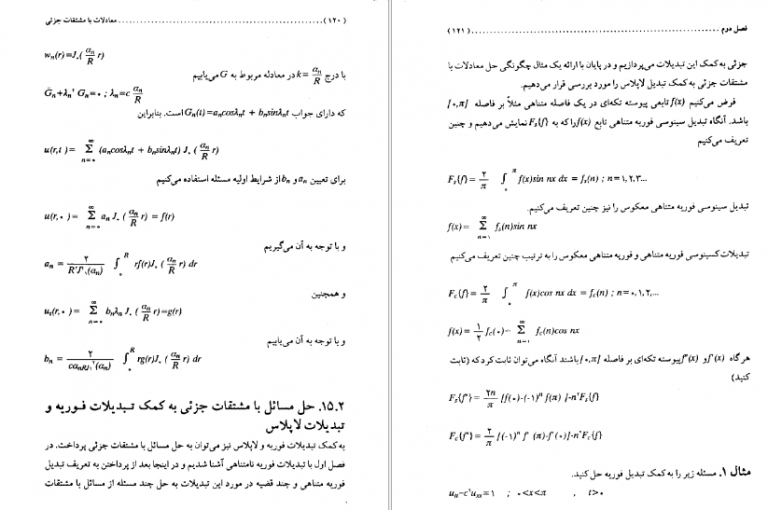 (۱۲۰) ........ معادلات با مشتقات جزئی
wₙ(r)=J₀(αₙ/R r)
با درج k=αₙ/R در معادله مربوط به G می‌یابیم
G̈ₙ+λₙ² Gₙ=۰ ; λₙ=c αₙ/R
که دارای جواب Gₙ(t)=aₙcosλₙt + bₙsinλₙt است. بنابراین
u(r,t) = Σ_{n=۰}^{∞} (aₙcosλₙt + bₙsinλₙt) J₀(αₙ/R r)
برای تعیین aₙ و bₙ از شرایط اولیه مسئله استفاده می‌کنیم
u(r,۰) = Σ_{n=۰}^{∞} aₙ J₀(αₙ/R r) = f(r)
و با توجه به آن می‌گیریم
aₙ = ۲/(R²J²₁(αₙ)) ∫_۰^R rf(r)J₀(αₙ/R r) dr
و همچنین
uₜ(r,۰) = Σ_{n=۰}^{∞} bₙλₙ J₀(αₙ/R r)=g(r)
و با توجه به آن می‌یابیم
bₙ = ۲/(cαₙRJ₁²(αₙ)) ∫_۰^R rg(r)J₀(αₙ/R r) dr
۱۵.۲. حل مسائل با مشتقات جزئی به کمک تبدیلات فوریه و
تبدیلات لاپلاس
به کمک تبدیلات فوریه و لاپلاس نیز می‌توان به حل مسائل با مشتقات جزئی پرداخت. در
فصل اول با تبدیلات فوریه نامتناهی آشنا شدیم و در اینجا بعد از پرداختن به تعریف تبدیل
فوریه متناهی و چند قضیه در مورد این تبدیلات به حل چند مسئله از مسائل با مشتقات
فصل دوم ........ (۱۲۱)
جزئی به کمک این تبدیلات می‌پردازیم و در پایان با ارائه یک مثال چگونگی حل معادلات با
مشتقات جزئی به کمک تبدیل لاپلاس را مورد بررسی قرار می‌دهیم.
فرض می‌کنیم f(x) تابعی پیوسته تکه‌ای در یک فاصله متناهی مثلاً بر فاصله [۰,π]
باشد. آنگاه تبدیل سینوسی فوریه متناهی تابع f(x) را که به Fₛ{f} نمایش می‌دهیم و چنین
تعریف می‌کنیم
Fₛ{f} = ۲/π ∫_۰^π f(x)sin nx dx = fₛ(n) ; n=۱,۲,۳...
تبدیل سینوسی فوریه متناهی معکوس را نیز چنین تعریف می‌کنیم.
f(x)= Σ_{n=۱}^{∞} fₛ(n)sin nx
تبدیلات کسینوسی فوریه متناهی و فوریه متناهی معکوس را به ترتیب چنین تعریف می‌کنیم
F_c{f} = ۲/π ∫_۰^π f(x)cos nx dx = f_c(n) ; n=۰,۱,۲,...
f(x)= ۱/۲ f_c(۰)- Σ_{n=۱}^{∞} f_c(n)cos nx
هرگاه f'(x) و f"(x) پیوسته تکه‌ای بر فاصله [۰,π] باشند آنگاه می‌توان ثابت کرد که (ثابت
کنید)
Fₛ{f"}= ۲n/π [f(۰)-(-۱)ⁿ f(π)]-n²Fₛ{f}
F_c{f"}= ۲/π [(-۱)ⁿ f'(π)-f'(۰)]-n²F_c{f}
مثال ۱. مسئله زیر را به کمک تبدیل فوریه حل کنید.
uₜₜ-c²uₓₓ=۱ ; ۰<x<π , t>۰